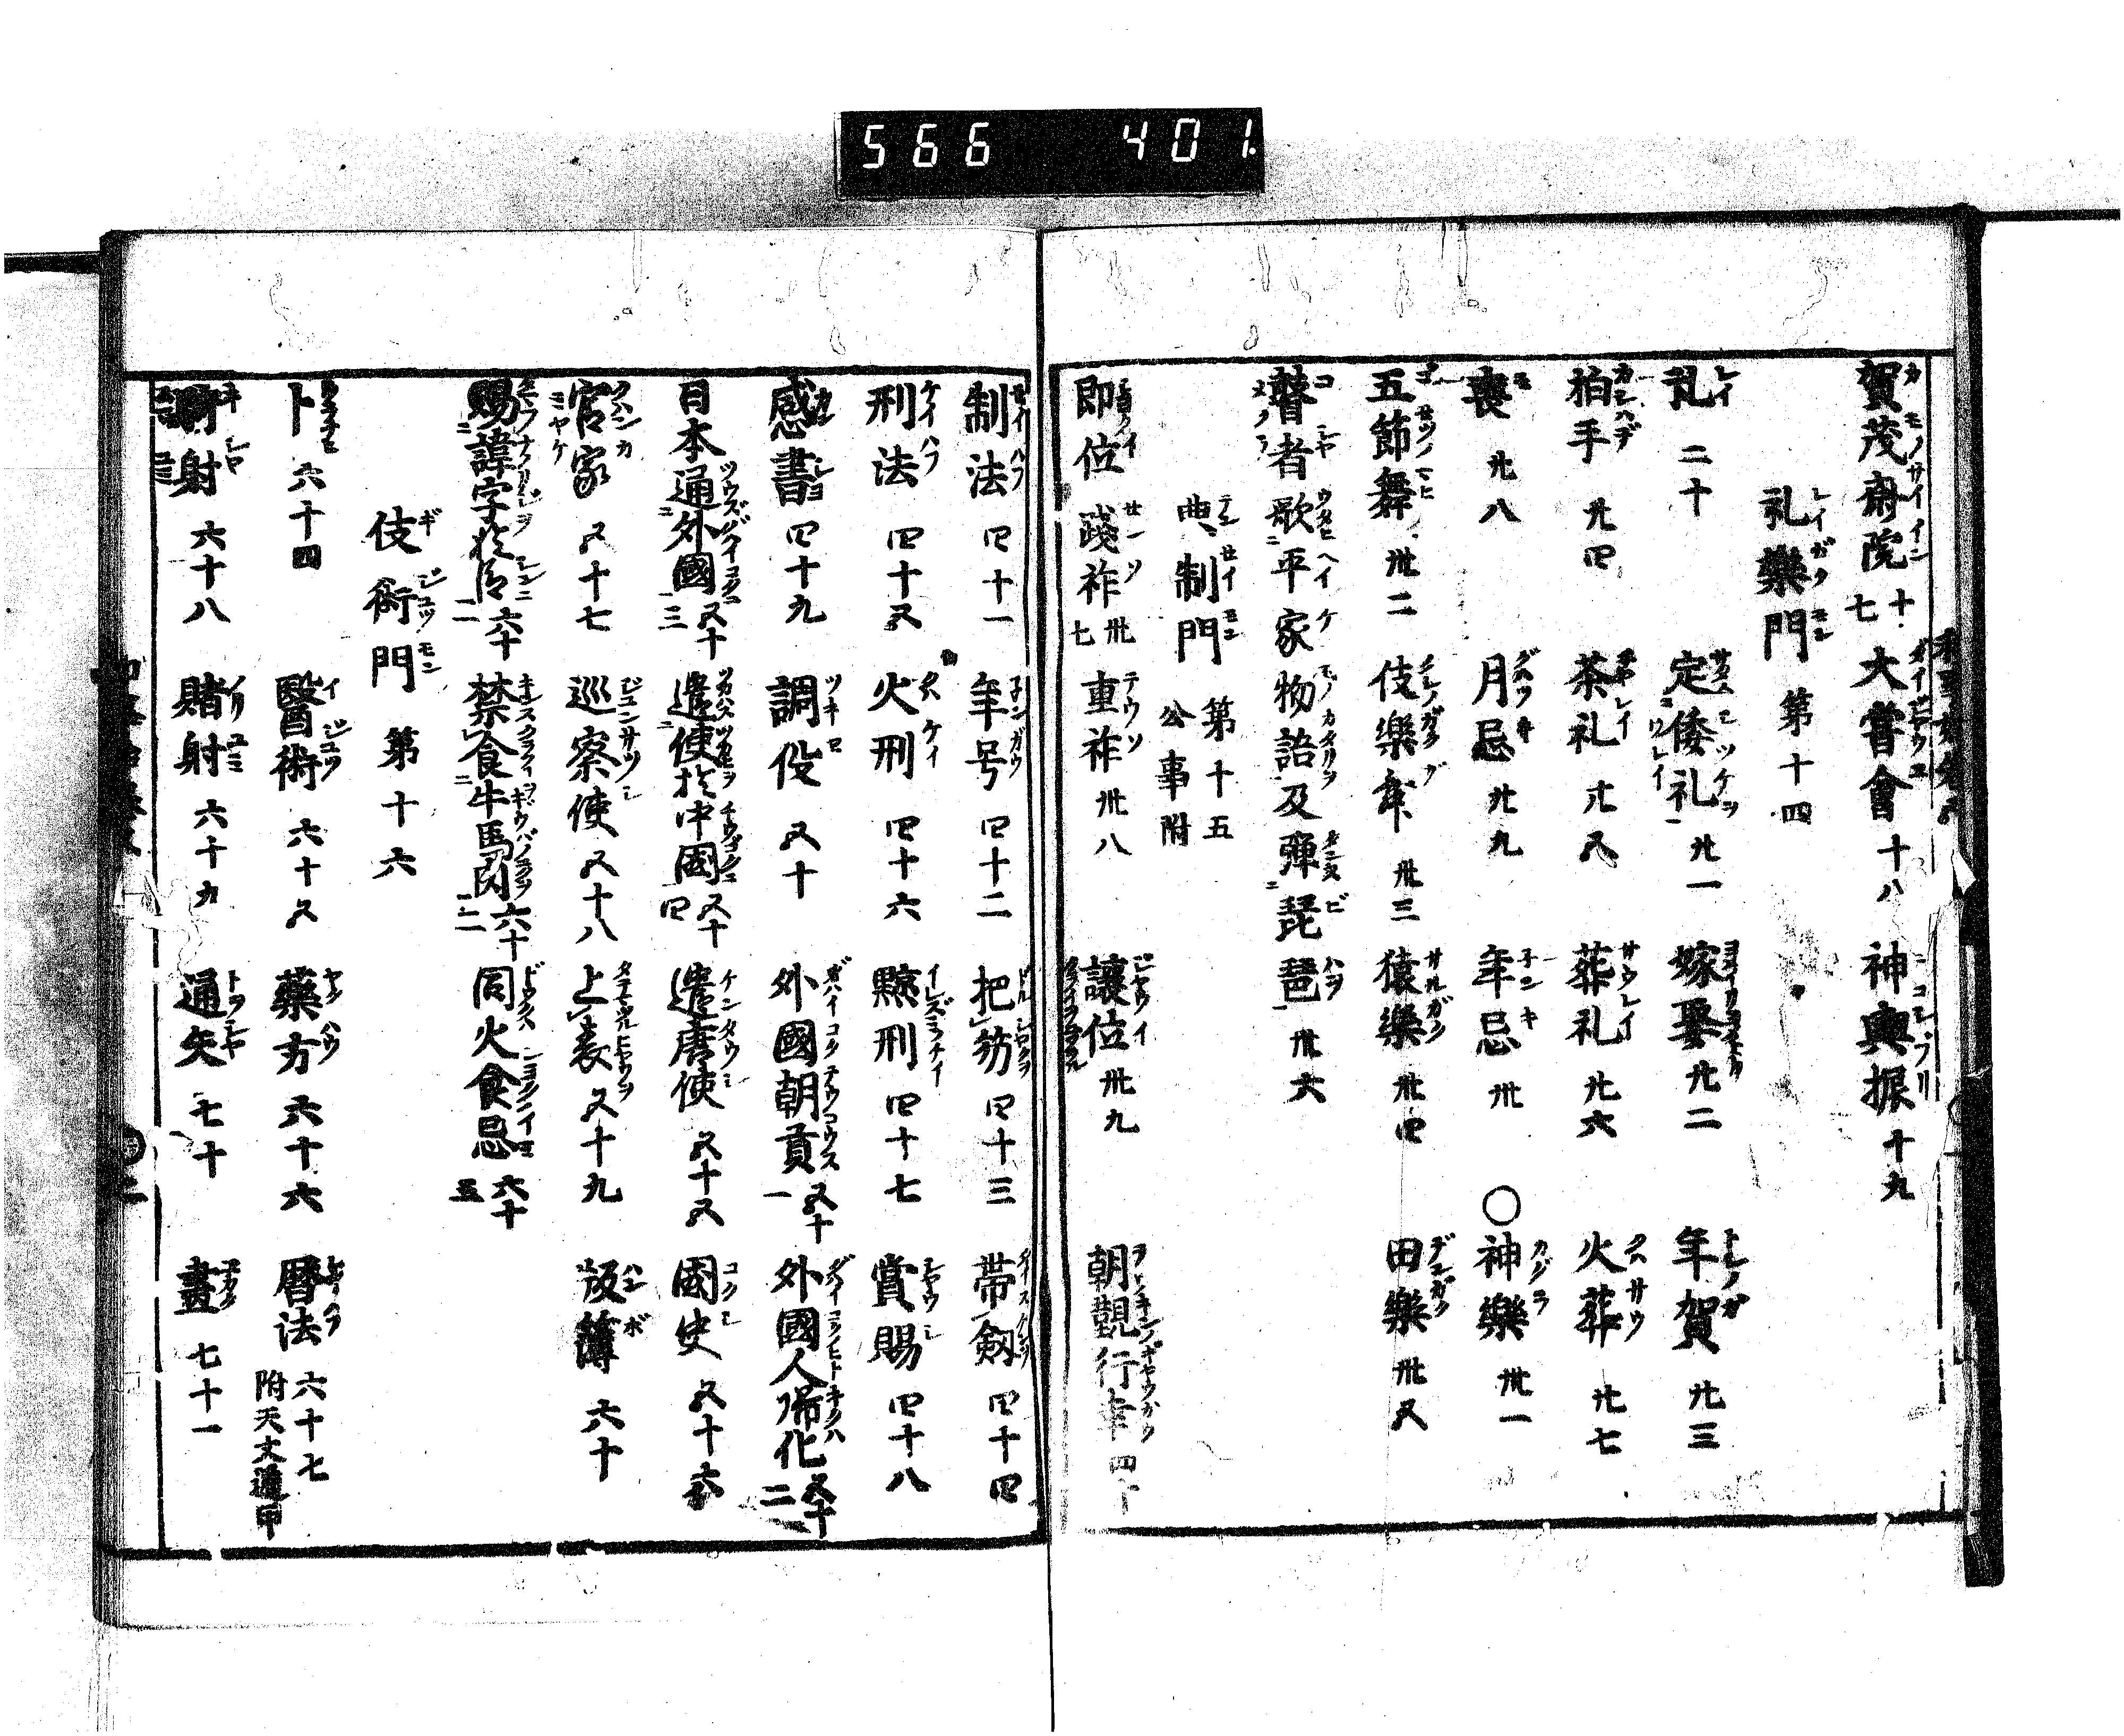 566 401.
賀茂齋院 十七 大嘗會 十八 神輿振 十九
礼樂門 第十四
礼 二十 定倭礼 廿一 嫁娶 廿二 年賀 廿三
拍手 廿四 茶礼 廿五 葬礼 廿六 火葬 廿七
喪 廿八 月忌 廿九 年忌 卅 〇神樂 卅一
五節舞 卅二 伎樂 卅三 猿樂 卅四 田樂 卅五
瞽者歌平家物語及彈琵琶 卅六
典制門 第十五 公事附
即位 踐祚 卅七 重祚 卅八 讓位 卅九 朝覲行幸 四十
制法 四十一 年号 四十二 把笏 四十三 帶劔 四十四
刑法 四十五 火刑 四十六 黥刑 四十七 賞賜 四十八
感書 四十九 調役 五十 外國朝貢 五十一 外國人帰化 五十二
日本通外國 五十三 遣使於中國 五十四 遣唐使 五十五 國史 五十六
官家 五十七 巡察使 五十八 上表 五十九 版薄 六十
賜諱字於臣 六十二 禁食牛馬肉 六十二 同火食忌 六十五
伎術門 第十六
卜 六十四 醫術 六十五 藥方 六十六 暦法 六十七 附天文遁甲
射 六十八 賭射 六十九 通矢 七十 畫 七十一